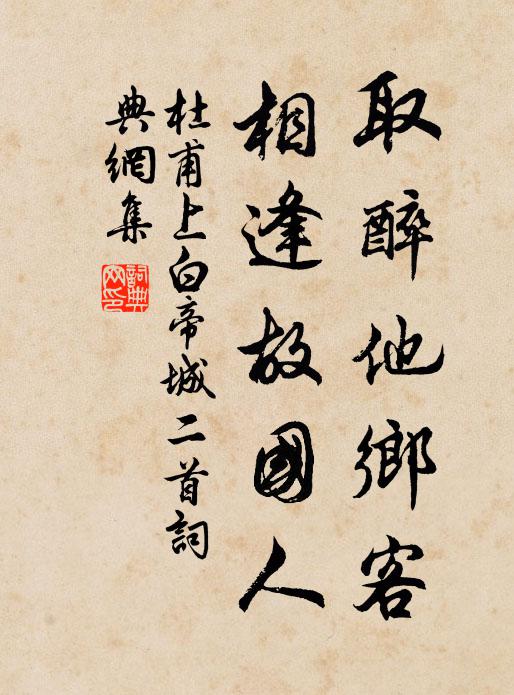 取醉他鄉客
相逢故國人
杜甫上白帝城二首詞
典網集
詞典
网印